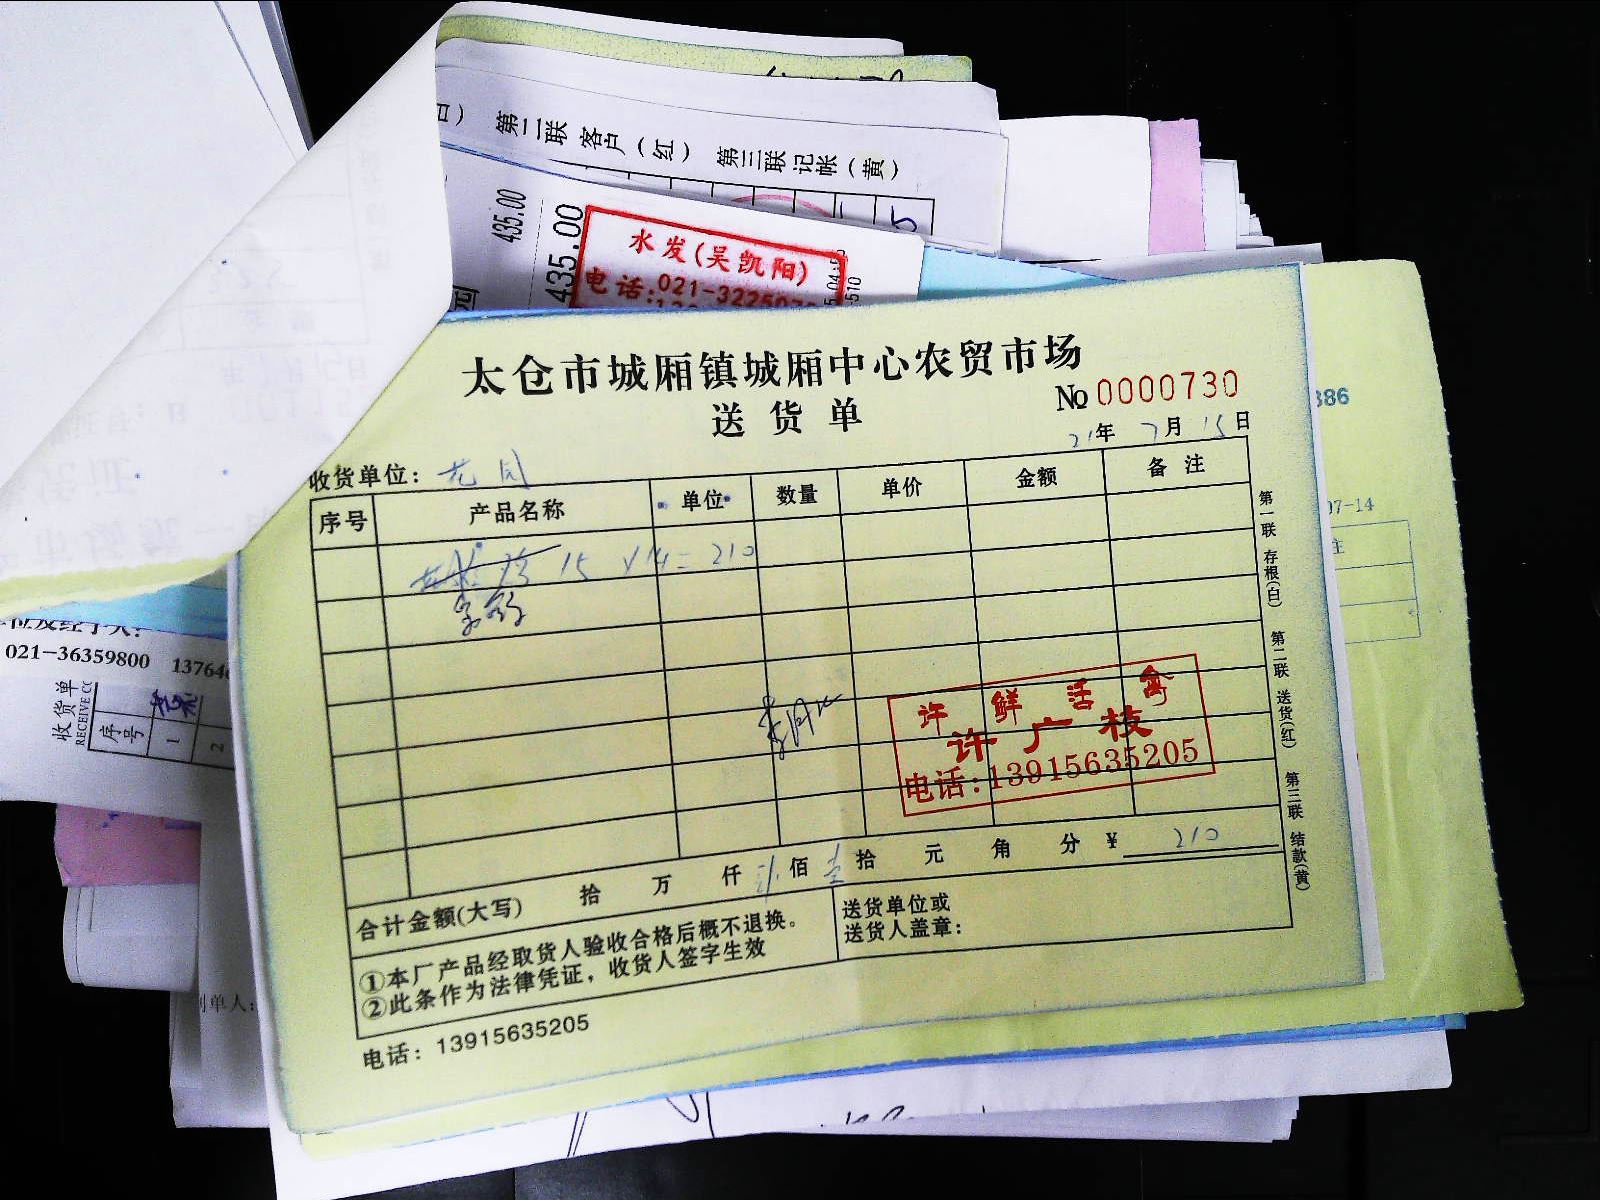 第二联 客户（红） 第三联 记帐（黄）
435.00
435.00
水发(吴凯阳)
电话:021-322507
太仓市城厢镇城厢中心农贸市场
送货单
№ 0000730
21年 7月 15日
收货单位：
序号 产品名称 单位 数量 单价 金额 备注
15 × 14 = 210
许 鲜 活 禽
许广枝
电话:13915635205
合计金额(大写) 拾 万 仟 佰 壹 拾 元 角 分 ¥ 210
①本厂产品经取货人验收合格后概不退换。
②此条作为法律凭证，收货人签字生效
送货单位或
送货人盖章：
电话：13915635205
第一联 存根(白) 第二联 送货(红) 第三联 结款(黄)
386
07-14
021-36359800 13764
收货单
RECEIVE
序号
1
2
制单人: